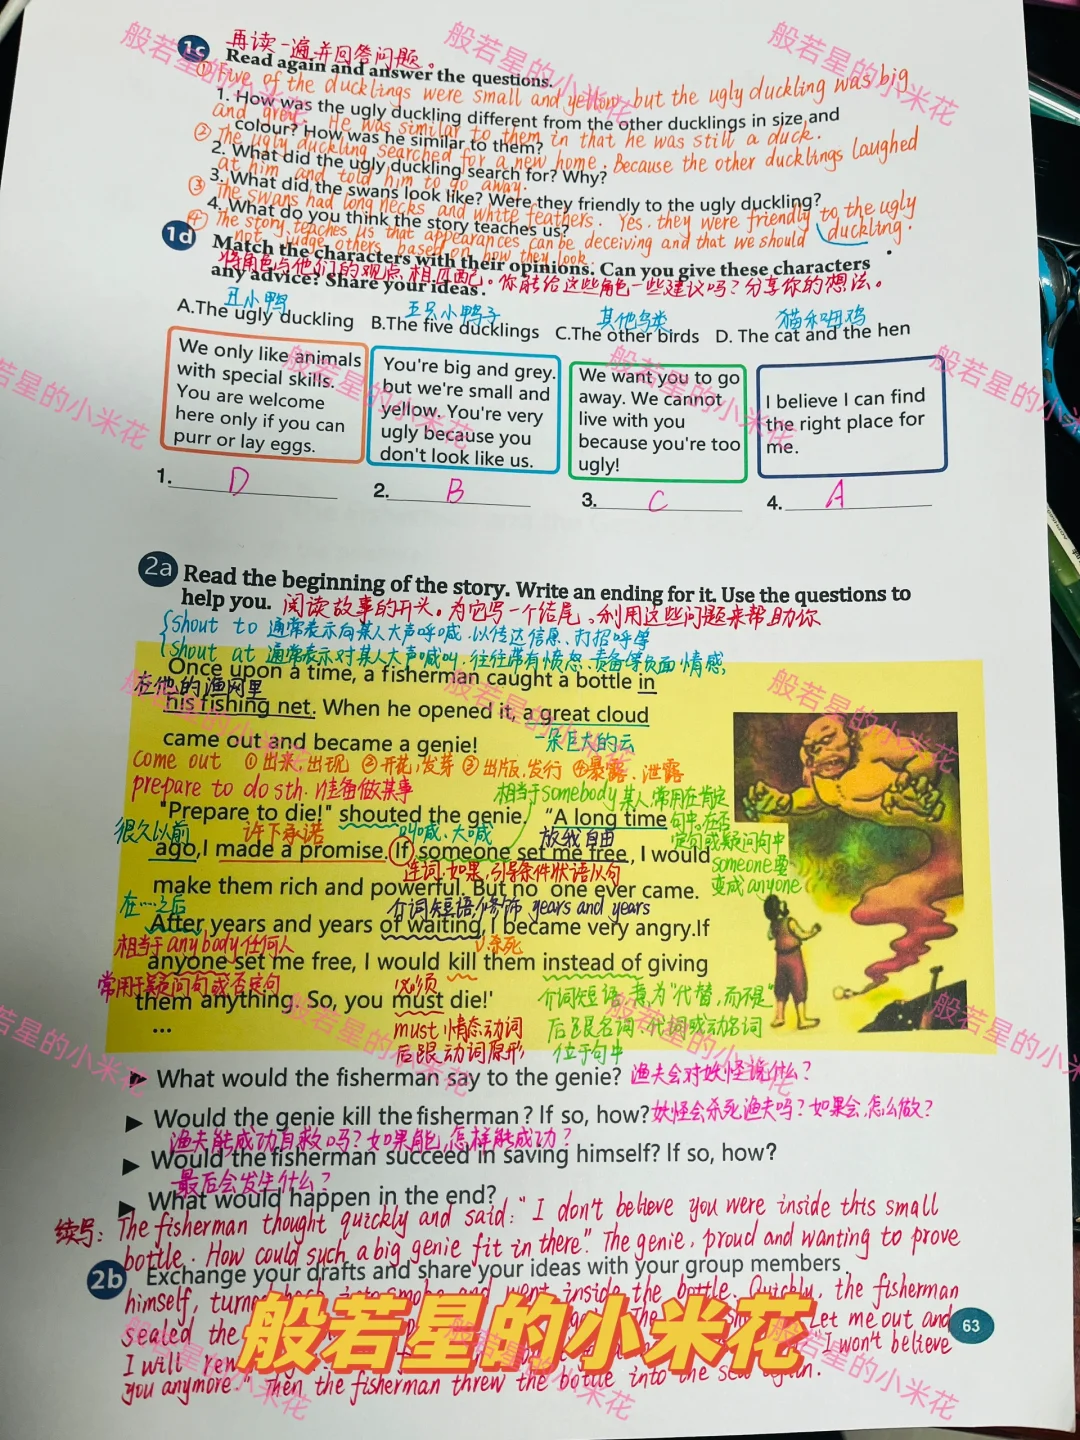 再读一遍并回答问题。
1c Read again and answer the questions.
① Five of the ducklings were small and yellow, but the ugly duckling was big
1. How was the ugly duckling different from the other ducklings in size and
and grey. He was similar to them in that he was still a duck.
colour? How was he similar to them?
② The ugly duckling searched for a new home. Because the other ducklings laughed
2. What did the ugly duckling search for? Why?
at him and told him to go away.
3. What did the swans look like? Were they friendly to the ugly duckling?
③ The swans had long necks and white feathers. Yes. they were friendly to the ugly
duckling.
4. What do you think the story teaches us?
④ The story teaches us that appearances can be deceiving and that we should
not judge others based on how they look.
1d Match the characters with their opinions. Can you give these characters
将角色与他们的观点相匹配。你能给这些角色一些建议吗？分享你的想法。
any advice? Share your ideas.
丑小鸭 五只小鸭子 其他鸟类 猫和母鸡
A.The ugly duckling B.The five ducklings C.The other birds D. The cat and the hen
We only like animals
with special skills.
You are welcome
here only if you can
purr or lay eggs.
You're big and grey.
but we're small and
yellow. You're very
ugly because you
don't look like us.
We want you to go
away. We cannot
live with you
because you're too
ugly!
I believe I can find
the right place for
me.
1. D 2. B 3. C 4. A
2a Read the beginning of the story. Write an ending for it. Use the questions to
help you. 阅读故事的开头。为它写一个结尾。利用这些问题来帮助你
shout to 通常表示向某人大声呼喊.以传达信息、打招呼等
shout at 通常表示对某人大声喊叫.往往带有愤怒、责备等负面情感,
Once upon a time, a fisherman caught a bottle in
在他的渔网里
his fishing net. When he opened it, a great cloud
came out and became a genie! 一朵巨大的云
come out ①出来,出现 ②开花,发芽 ③出版,发行 ④暴露、泄露
prepare to do sth. 准备做某事
相当于somebody某人,常用在肯定
句中.在否
定句或疑问句中
someone要
变成anyone
"Prepare to die!" shouted the genie. "A long time
很久以前 许下承诺 呼喊、大喊 放我自由
ago,I made a promise. If someone set me free, I would
连词.如果,引导条件状语从句
make them rich and powerful. But no one ever came.
在……之后 介词短语,修饰 years and years
After years and years of waiting,I became very angry.If
相当于anybody任何人 v.杀死
anyone set me free, I would kill them instead of giving
常用于疑问句或否定句 必须
them anything. So, you must die!'
介词短语,意为"代替,而不是"
...
must 情态动词 后跟名词、代词或动名词
后跟动词原形 位于句中
▶ What would the fisherman say to the genie? 渔夫会对妖怪说什么？
▶ Would the genie kill the fisherman? If so, how? 妖怪会杀死渔夫吗？如果会,怎么做？
渔夫能成功自救吗？如果能,怎样能成功？
▶ Would the fisherman succeed in saving himself? If so, how?
最后会发生什么？
▶ What would happen in the end?
续写: The fisherman thought quickly and said: "I don't believe you were inside this small
bottle. How could such a big genie fit in there". The genie, proud and wanting to prove
2b Exchange your drafts and share your ideas with your group members.
himself, turned back into smoke and went inside the bottle. Quickly, the fisherman
sealed the Let me out and
63
I will I won't believe
you anymore." Then the fisherman threw the bottle into the sea again.
般若星的小米花